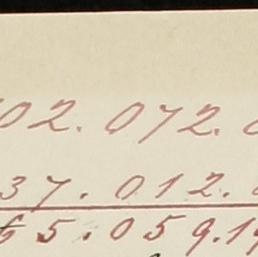 02.072.
37.012.
65.059.19